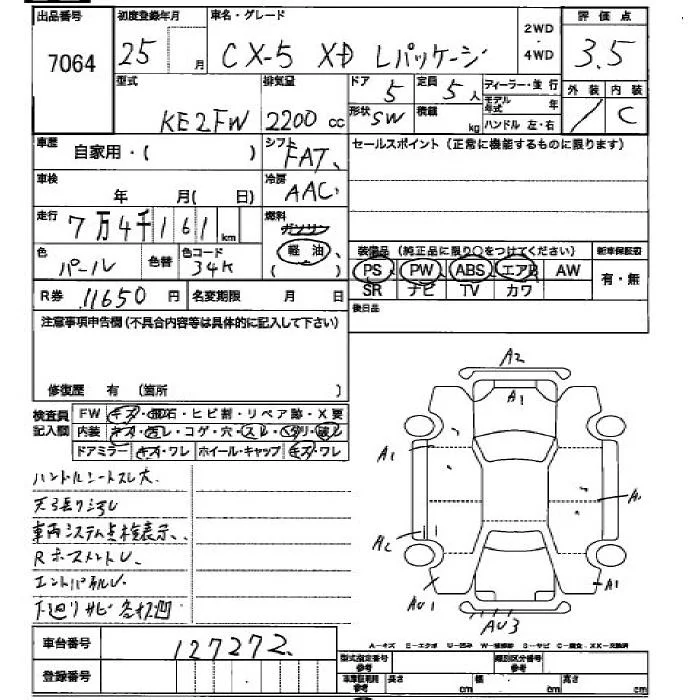 出品番号 初度登録年月 車名・グレード 評価点
7064 25 月 CX-5 XD Lパッケージ 2WD・4WD 3.5
型式 排気量 ドア 定員 ディーラー・並行 外装 内装
KE2FW 2200 cc 5 5人 モデル年式 年 C
形状 SW 積載 kg ハンドル 左・右
車歴 自家用・( ) シフト FAT セールスポイント(正常に機能するものに限ります)
車検 年 月( 日) 冷房 AAC
走行 7万4千161 km 燃料 ガソリン
軽油
( )
色 パール 色替 色コード 34K
装備品(純正品に限り○をつけてください) 新車保証書
PS PW ABS エアB AW 有・無
SR ナビ TV カワ
R券 11650 円 名変期限 月 日 後日品
注意事項申告欄(不具合内容等は具体的に記入して下さい)
修復歴 有 (箇所 )
検査員記入欄 FW キズ・飛石・ヒビ割・リペア跡・X要
内装 キズ・汚レ・コゲ・穴・スレ・ヘタリ・破レ
ドアミラー キズ・ワレ ホイール・キャップ キズ・ワレ
ハンドルシートスレ大
車両システム点検表示
下廻りサビ
A2
A1
A1
A
A2
AU1
A1
AU3
A-キズ E-エクボ U-凹み W-補修跡 S-サビ C-腐食 XX-交換済
車台番号 127272
登録番号
型式指定番号 参考 類別区分番号 参考
車庫証明用 参考 長さ cm 幅 cm 高さ cm